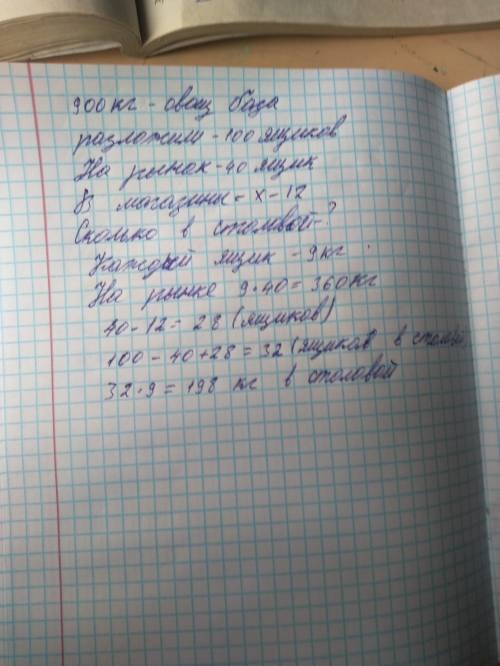 900 кг - овощ база
разложили - 100 ящиков
На рынок - 40 ящик
В магазины - х - 12
Сколько в столвой - ?
Каждый ящик - 9 кг.
На рынке 9 · 40 = 360 кг
40 - 12 = 28 (ящиков)
100 - 40 + 28 = 32 (ящиков в столвой
32 · 9 = 198 кг в столовой